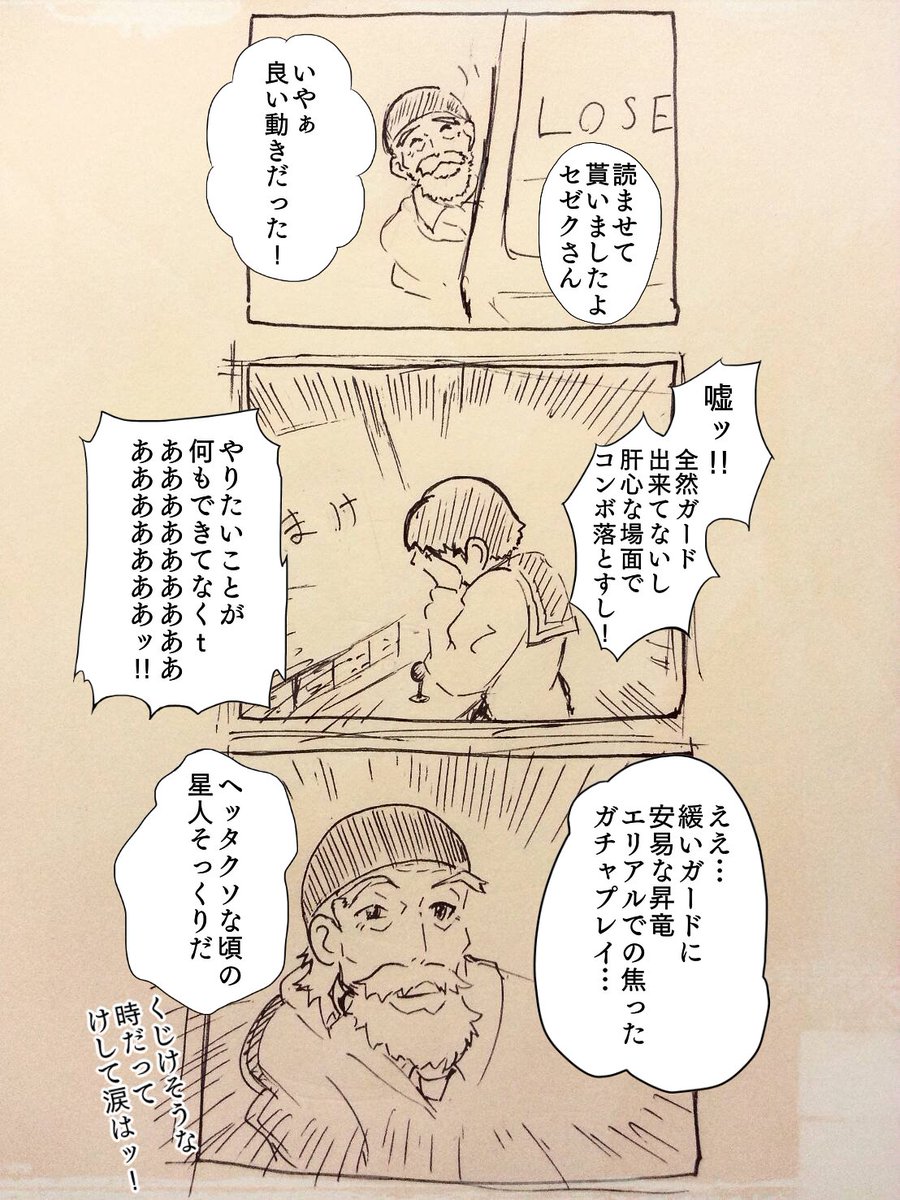 LOSE
読ませて
貰いましたよ
セゼクさん
いやぁ
良い動きだった！
嘘ッ!!
全然ガード
出来てないし
肝心な場面で
コンボ落とすし！
まけ
やりたいことが
何もできてなくt
ああああああああ
あああああああッ!!
ええ…
緩いガードに
安易な昇竜
エリアルでの焦った
ガチャプレイ…
ヘッタクソな頃の
星人そっくりだ
くじけそうな
時だって
けして涙はッ！